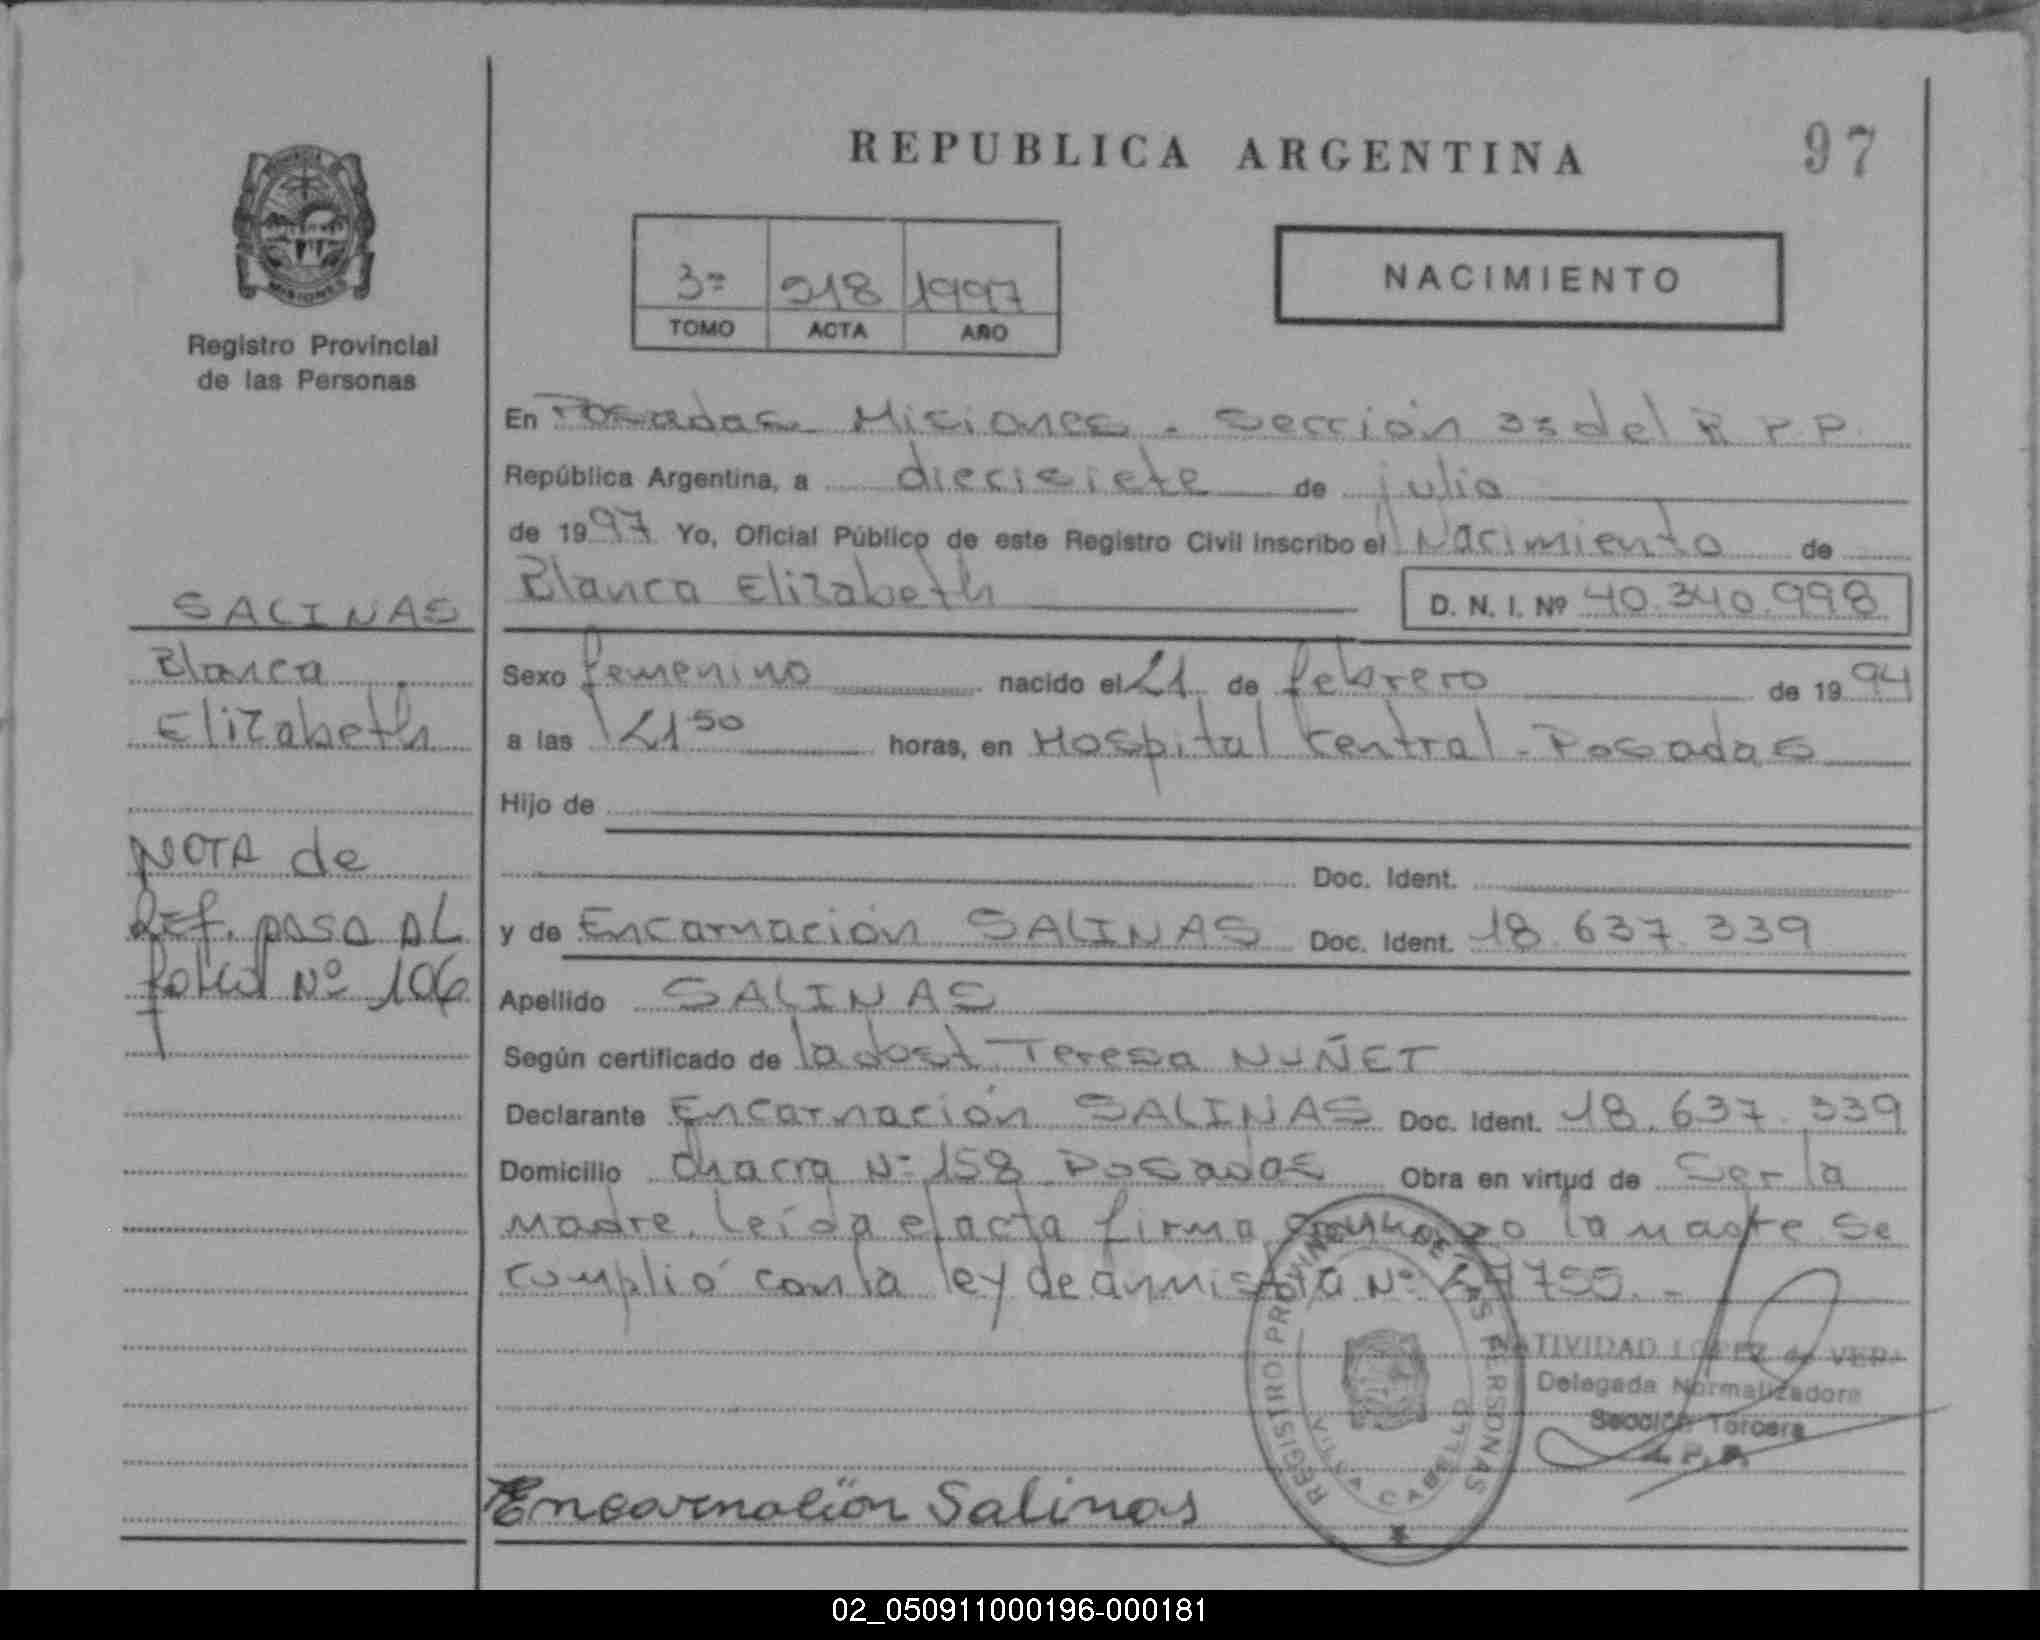 REPUBLICA ARGENTINA
97
MISIONES
Registro Provincial
de las Personas
3º 918 1997
TOMO ACTA AÑO
NACIMIENTO
En Posadas Misiones - Sección 3ª del R P P.
República Argentina, a diecisiete de julio
de 1997 Yo, Oficial Público de este Registro Civil inscribo el Nacimiento de
Blanca Elizabeth D. N. I. Nº 40.340.998
SALINAS
Blanca
Elizabeth
NOTA de
Ref. pasa AL
folio Nº 106
Sexo femenino nacido el 21 de febrero de 1994
a las 21 50 horas, en Hospital Central - Posadas
Hijo de
Doc. Ident.
y de Encarnación SALINAS Doc. Ident. 18.637.339
Apellido SALINAS
Según certificado de la obst. Teresa NUÑEZ
Declarante Encarnación SALINAS Doc. Ident. 18.637.339
Domicilio Chacra Nº 158 Posadas Obra en virtud de Ser la
madre. Leída el acta firma la madre se
cumplió con la ley de amnistía Nº 24755.-
REGISTRO PROVINCIAL DE LAS PERSONAS
VILLA CABELLO
NATIVIDAD LOPEZ de VERA
Delegada Normalizadora
Sección Tercera
R.P.P.
Encarnación Salinas
02_050911000196-000181